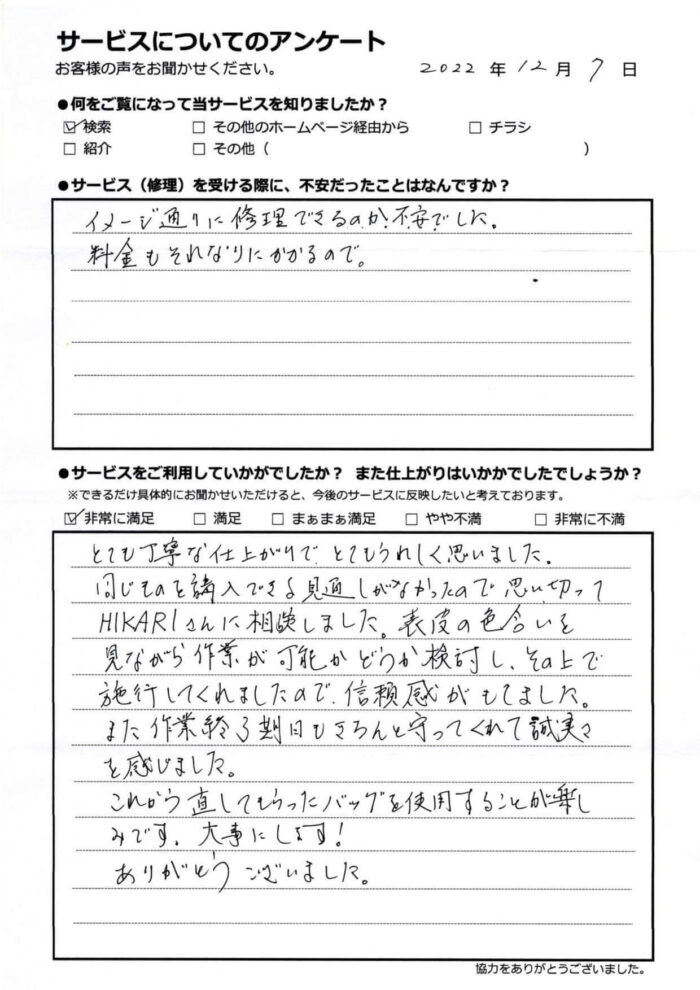 サービスについてのアンケート
お客様の声をお聞かせください。 2022 年 12 月 7 日
●何をご覧になって当サービスを知りましたか？
☑検索 □ その他のホームページ経由から □ チラシ
□ 紹介 □ その他（ ）
●サービス（修理）を受ける際に、不安だったことはなんですか？
イメージ通りに修理できるのか不安でした。
料金もそれなりにかかるので。
●サービスをご利用していかがでしたか？ また仕上がりはいかかでしたでしょうか？
※できるだけ具体的にお聞かせいただけると、今後のサービスに反映したいと考えております。
☑非常に満足 □ 満足 □ まぁまぁ満足 □ やや不満 □ 非常に不満
とても丁寧な仕上がりで とてもうれしく思いました。
同じものを購入できる見通しがなかったので思い切って
HIKARIさんに相談しました。表皮の色合いを
見ながら作業が可能かどうか検討し、その上で
施行してくれましたので、信頼感がもてました。
また作業終了期日もきちんと守ってくれて誠実さ
を感じました。
これから直してもらったバッグを使用することが楽し
みです。大事にします！
ありがとうございました。
協力をありがとうございました。